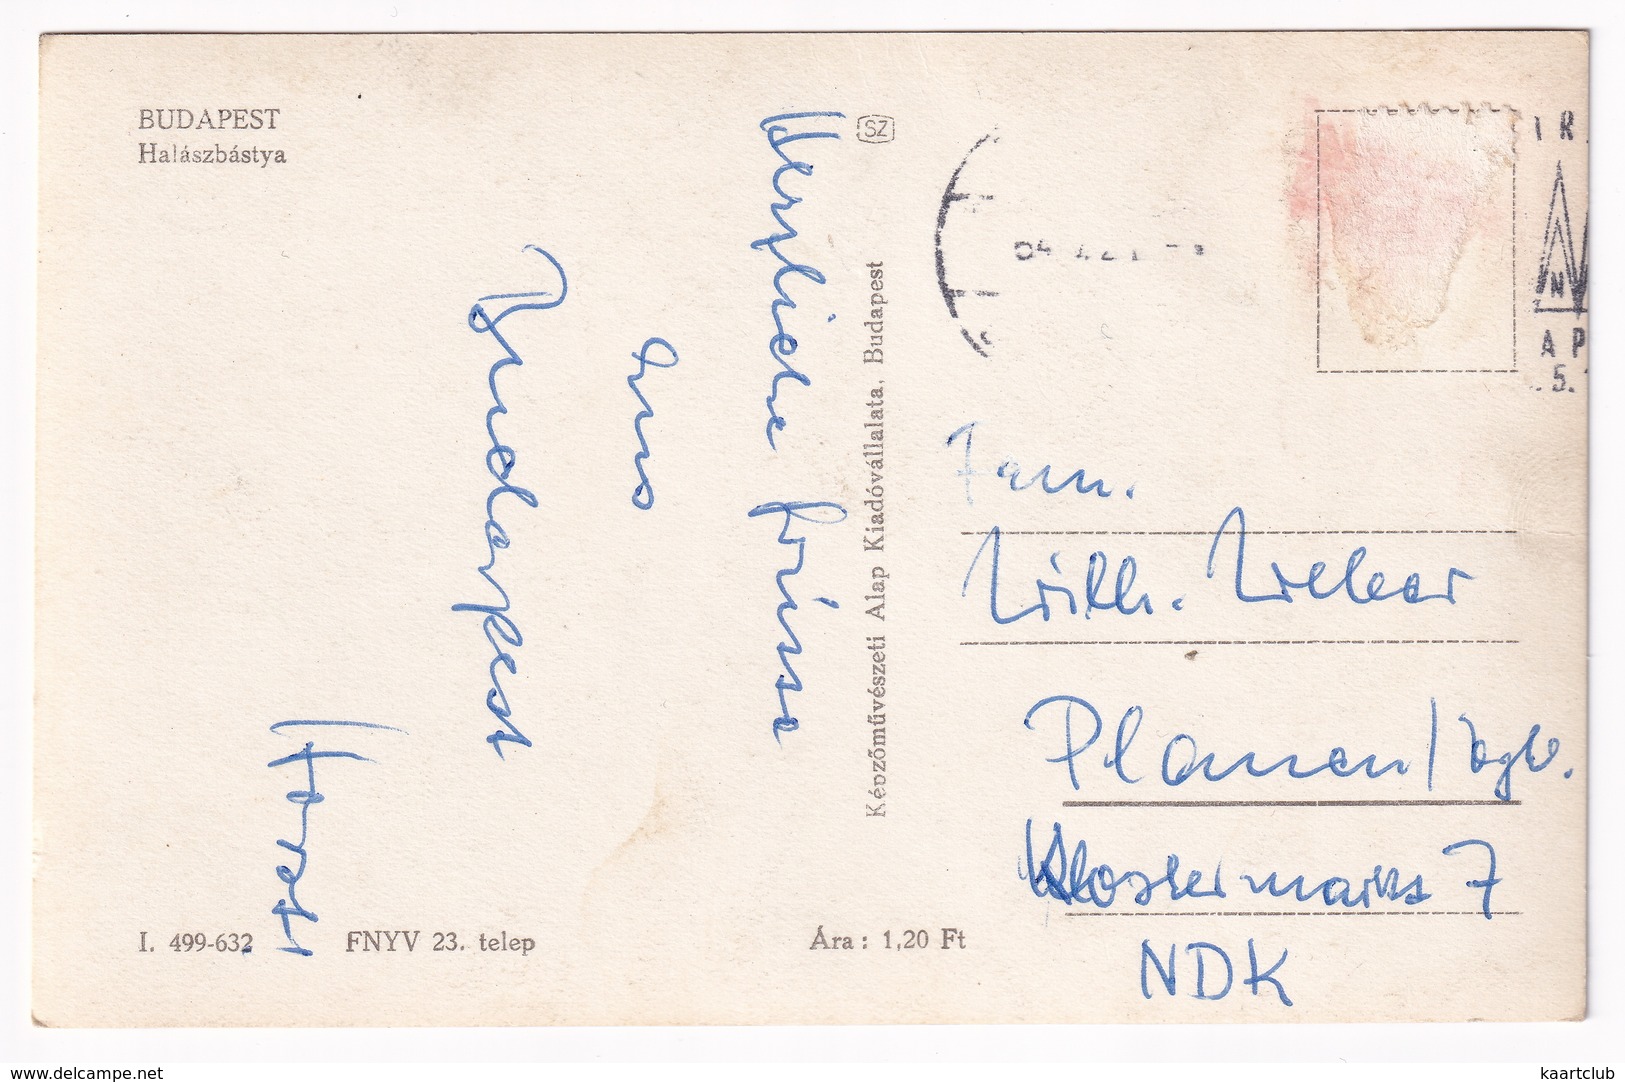 BUDAPEST
Halászbástya
SZ
Herzliche Grüsse
aus
Budapest
Horst
Képzőművészeti Alap Kiadóvállalata, Budapest
Fam.
Willi. Weber
Plauen / Vgtl.
Klostermarkt 7
NDK
I. 499-632 FNYV 23. telep
Ára: 1,20 Ft
IR
N
AP
.5.
www.delcampe.net
kaartclub